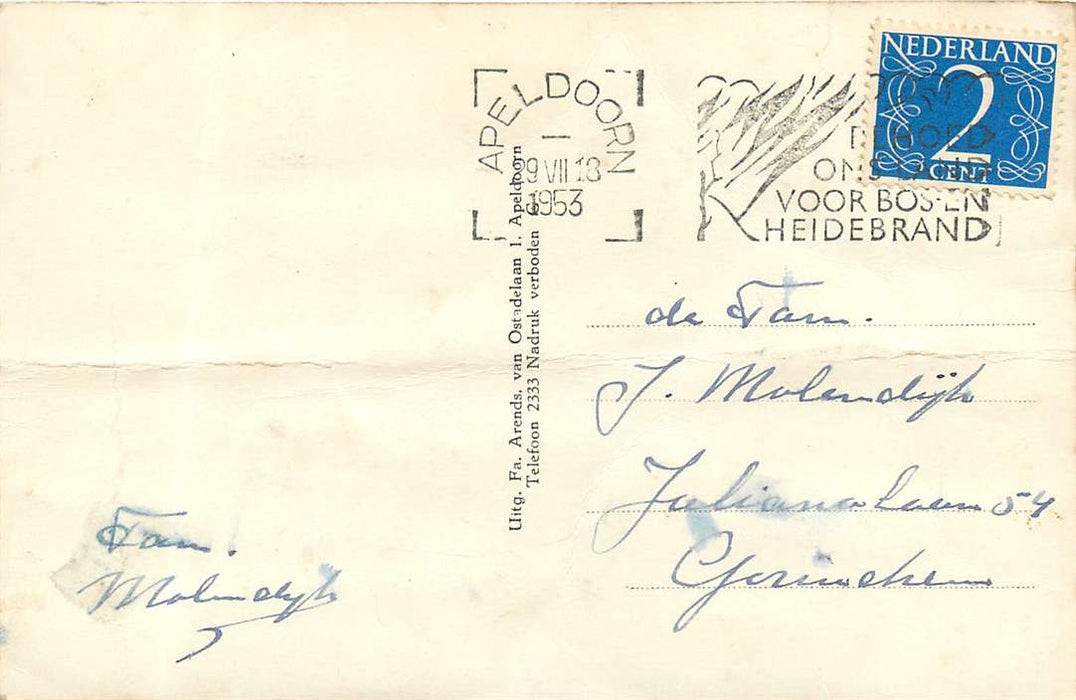 NEDERLAND
2
CENT
APELDOORN
29 VII 18
1953
BEHOED
ONS LAND
VOOR BOS-EN
HEIDEBRAND
Uitg. Fa. Arends. van Ostadelaan 1. Apeldoorn
Telefoon 2333 Nadruk verboden
de Fam.
J. Molendijk
Julianalaan 54
Gorinchem
Fam.
Molendijk